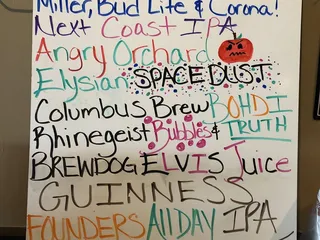 Miller, Bud Lite & Corona!
Next Coast IPA
Angry Orchard
Elysian SPACE DUST
Columbus Brew BOHDI
Rhinegeist Bubbles & TRUTH
BREWDOG ELVIS Juice
GUINNESS
FOUNDERS All DAY IPA